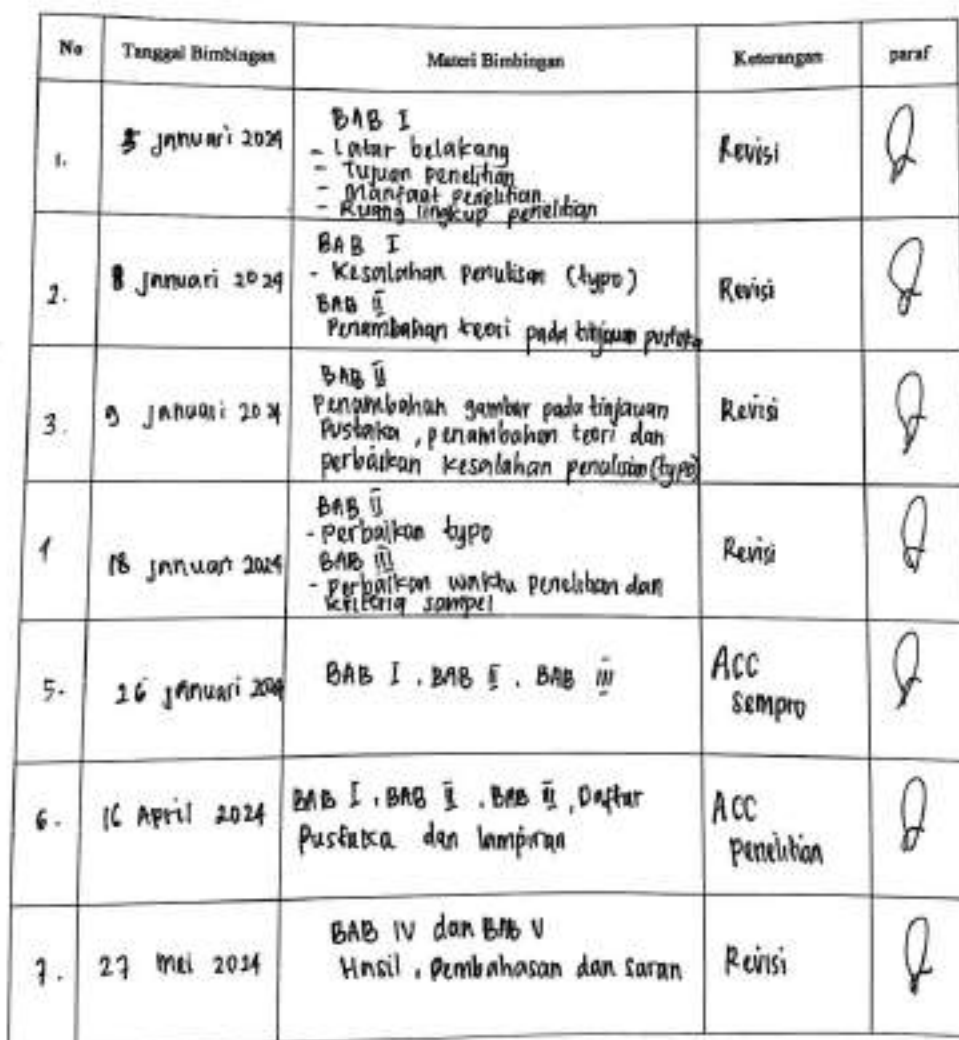 No Tanggal Bimbingan Materi Bimbingan Keterangan paraf
1. 5 januari 2024 Revisi
BAB I
- Latar belakang
- Tujuan penelitian
- Manfaat penelitian
- Ruang lingkup penelitian
2. 8 januari 2024 Revisi
BAB I
- Kesalahan penulisan (typo)
BAB II
Penambahan teori pada tinjauan pustaka
3. 9 januari 2024 Revisi
BAB II
Penambahan gambar pada tinjauan
Pustaka, penambahan teori dan
perbaikan kesalahan penulisan (typo)
4 18 januari 2024 Revisi
BAB II
- perbaikan typo
BAB III
- perbaikan waktu penelitian dan
kriteria sampel
5. 26 januari 2024 BAB I, BAB II, BAB III ACC
sempro
6. 16 April 2024 BAB I, BAB II, BAB III, Daftar ACC
Pustaka dan lampiran penelitian
7. 27 mei 2024 Revisi
BAB IV dan BAB V
Hasil, Pembahasan dan saran